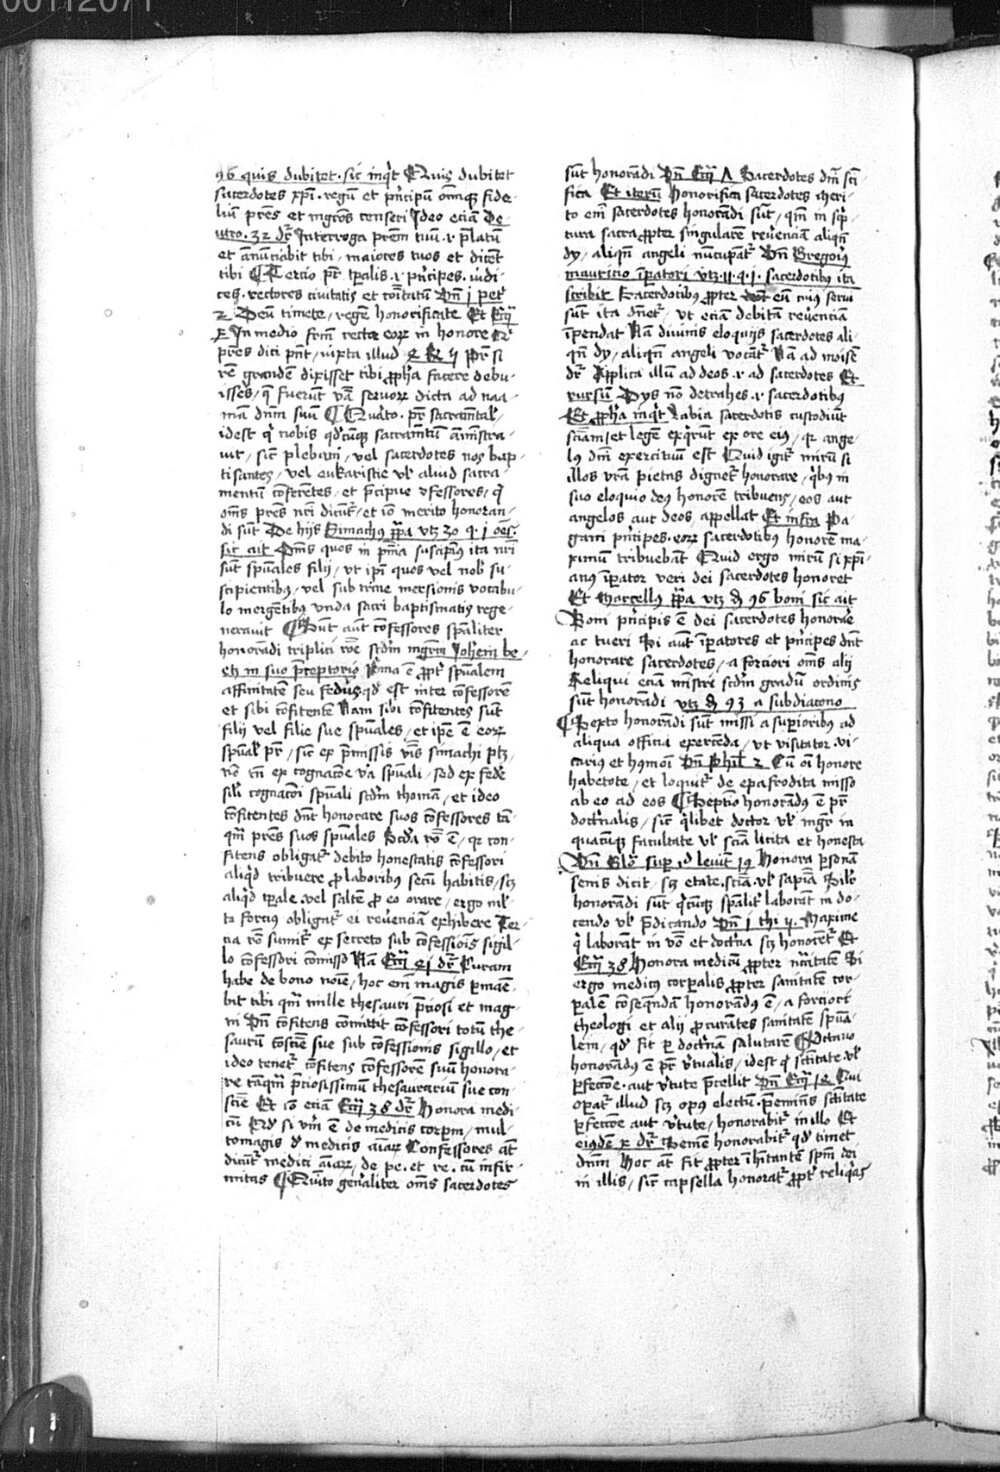 00112071
96 quis dubitet · sic inq̇t Quis dubitet
sacerdotes xp̄i · regū et p̄ncipū oīmq̨ fide
liū prēs et mgrōs censeri Ideo eciā De
utro · 32 dr̄ Interroga prēm tuū · ı · p̄latū
et ānūciabit tibi / maiores tuos et dicēt
tibi ¶ Tercio pr̄ tp̄alis · ı · p̄ncipes · iudi
ces · rectores ciuitatis et cōitatū Vn̄ 1 pet̄
2 Deū timete / regē honorificate Et Eccī
x In medio frm̄ rector eoꝝ in honore Et
prēs dici pn̄t / iuxta illud 4 R̄ ij Pr̄ si
rē grandē dixisset tibi ꝓpha facere debu
isses / q̄ fuerūt v̄ba seruoꝝ dicta ad naa
man dn̄m suū ¶ Quarto · pr̄ sacramētal̄
idest q̇ nobis qd̄cūq̨ sacramētū āministra
uit / sic̄ plebani / vel sacerdotes nos bap
tisantes / vel eukaristie vl̄ aliud sacra
mentū cōferētes / et p̄cipue ↄfessores / q̇
om̄s prēs nr̄i dicūt̄ / et iō merito honoran
di sūt De hijs Simachus pp̄a vtz 30 q · j om̄s
sic ait Om̄s quos in pn̄ia suscipim̄ ita nr̄i
sūt spūales filij / vt ip̄i quos vel nob̄ su
scipientibus / vel sub trine mersionis vocabu
lo mergētibus vnda sacri baptismatis rege
nerauit ¶ Sunt aūt cōfessores spāliter
honorādi triplici rōe scd̄m mgr̄m Joh̄em be
etz in suo p̄ceptorio Prima ē ꝓpt̄ spūalem
affinitatē seu fedus qd̄ est inter cōfessorē
et sibi cōfitentē Nam sibi cōfitentes sūt
filij vel filie sue spūales / et ip̄e ē eoꝝ
spūal̄ pr̄ / sic̄ ex p̄missis v̄bis simachi ptz /
nō tn̄ ex cognacōe v̄a spūali / sed ex fede
sil̄i cognacōi spūali scd̄m thomā / et ideo
cōfitentes dn̄t honorare suos cōfessores tā
qm̄ prēs suos spūales Scd̄a rō ē / qr con
fitens obligat̄ debito honestatis cōfessori
aliq̇d tribuere ꝓ laboribus secū habitis / scz
aliq̇d tp̄ale · vel saltē ꝓ eo orare / ergo ml̄
to forcius obligat̄ ei reuerēciā exhibere Ter
cia rō sumit̄ ex secreto sub cōfessiōis sigil
lo cōfessori cōmisso Nā Eccī 41 dr̄ Curam
habe de bono noīe / hoc em̄ magis p̱manē
bit tibi qm̄ mille thesauri p̄ciosi et mag
ni Vn̄ cōfitens cōmittit cōfessori totū the
saurū cōsciē sue sub cōfessionis sigillo / et
ideo tenet̄ cōfitens cōfessorē suū honora
re tāqm̄ p̄ciosissimū thesaurariū sue con
sciē Et iō eciā Eccī 38 dr̄ Honora medi
cū Qd̄ si vm̄ ē de medicis corpm̄ / mul
tomagis de medicis aīaꝝ Confessores aūt
dicūt̄ medici aīaꝝ / de pe · et re · cū infir
mitas ¶ Quīto genāliter om̄s sacerdotes
sūt honorādi Vn̄ Eccī Λ Sacerdotes dn̄i scī
fica Et iterū Honorifica sacerdotes Meri
to em̄ sacerdotes honorādi sūt / qm̄ in sc̄p
tura sacra ꝓpter singularē reuerēciā aliqn̄
dij / aliqn̄ angeli nūcupāt̄ Vn̄ Gregoriꝰ
mauricio ip̄atori vtz 11 · q · 1 · sacerdotibus ita
scribit Sacerdotibus ꝓpter eū cuius serui
sunt ita dn̄et̄ / vt eciā debitā reuerēciā
īpendat Nā diuinis eloquijs sacerdotes ali
qn̄ dij / aliqn̄ angeli vocāt̄ Nā ad moisē
dr̄ Applica illū ad deos · ı · ad sacerdotes Et
rursū Dijs nō detrahes · ı · sacerdotibus
Et ꝓpha inq̇t Labia sacerdotis custodiūt
sciam / et legē exq̇rūt ex ore eius / qr ange
lus dn̄i exercituū est Quid igit̄ mirū si
illos vr̄a pietas dignet̄ honorare / q̇bus in
suo eloquio deus honorē tribuens / eos aut
angelos aut deos appellat Et infra Pa
gani p̄ncipes · eoꝝ sacerdotibus honorē ma
ximū tribuebāt Quid ergo mirū si xp̄i
anus ip̄ator veri dei sacerdotes honoret
Et Marcellus pp̄a vtz di 96 boni sic ait
Boni p̄ncipis ē dei sacerdotes honorare
ac tueri Si aūt ip̄atores et p̄ncipes dn̄t
honorare sacerdotes / a forciori om̄s alij
Reliqui eciā mīstri scd̄m gradū ordinis
sunt honorādi vtz di 93 a subdiacono
¶ Sexto honorādi sūt missi a suꝑioribus ad
aliqua officia exercēda / vt visitator · vi
carius et hmōi Vn̄ Phil̄ 2 Cū oī honore
habetote / et loquit̄ de epafrodita misso
ab eo ad eos ¶ Septīo honorādus ē pr̄
doct̄nalis / sic̄ q̇libet doctor vl̄ mgr̄ in
quacūq̨ facultate vl̄ sciā licita et honesta
Vn̄ Glo suꝑ id leuit̄ 19 Honora ꝑsonā
senis dicit / scz etate · sciā · vl̄ sapiā Sil̄r
honorādi sūt q̇cūq̨ spālit̄ laborāt in do
cendo vl̄ p̄dicando Vn̄ 1 thi 5 · Maxime
q̇ laborāt in v̄bo et doct̄na scz honorēt̄ Et
Eccī 38 Honora medicū ꝓpter nc̄itatē Si
ergo medicus corꝑalis ꝓpter sanitatē cor
ꝑalē cōseq̄ndā honorādus ē / a forciori
theologi et alij ꝓcurātes sanitatē spūa
lem / qd̄ fit ꝑ doct̄nam salutarē ¶ Octauo
honorādus ē pr̄ v̄tualis / idest q̇ sc̄itate · vl̄
ꝑfectōe · aut v̄tute p̄cellit Vn̄ Eccī 10 Qui
oꝑat̄ illud scz opus electū · p̄eminēs sc̄itate
ꝑfectōe aut v̄tute / honorabit̄ in illo Et
eiusdē x dr̄ Semē honorabit̄ qd̄ timet
dn̄m Hoc aūt fit ꝓpter īhitantē spm̄ dei
in illis / sic̄ capsella honorat̄ ꝓpt̄ reliq̇as